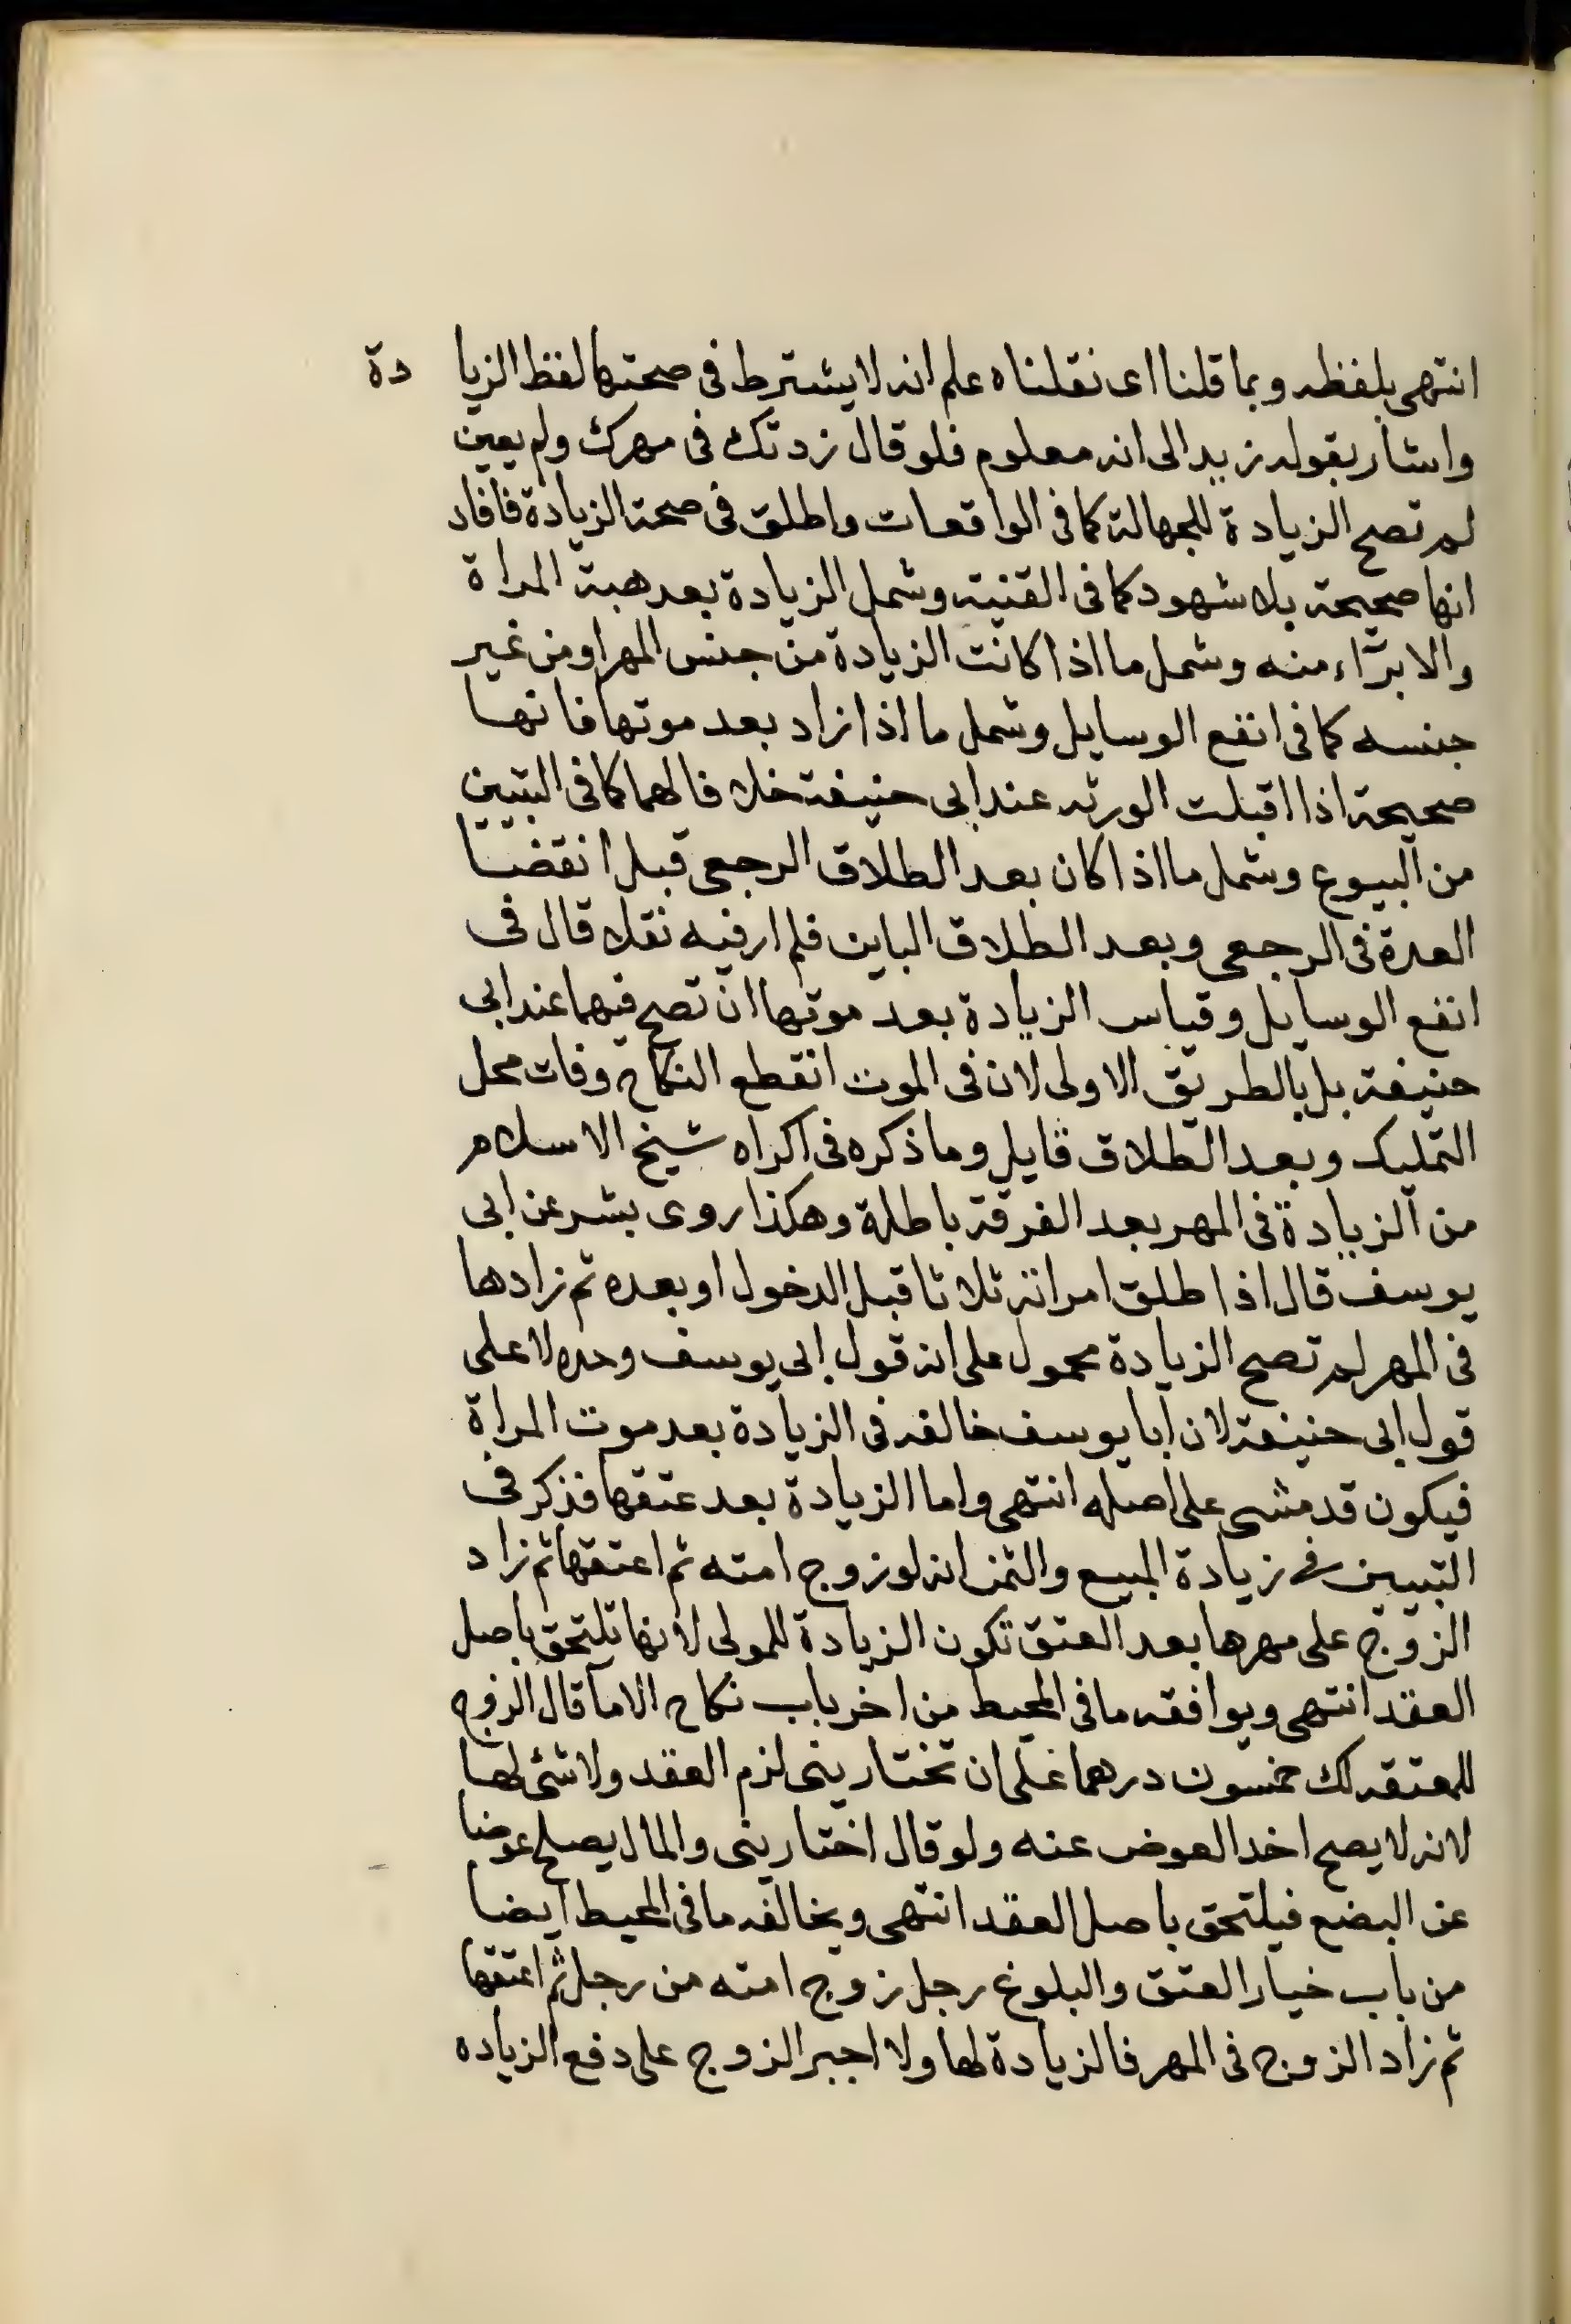 انتهى بلفظه وبما قلنا اى نقلناه علم انه لا يشترط فى صحتها لفظ الزيادة
واشار بقوله زيد الى انه معلوم فلو قال زدتك فى مهرك ولم يعين
لم تصح الزيادة للجهالة كما فى الواقعات واطلق فى صحة الزيادة فافاد
انها صحيحة بلا شهود كما فى القنية وشمل الزيادة بعد هبة المراة
والابراء منه وشمل ما اذا كانت الزيادة من جنس المهر او من غير
جنسه كما فى انفع الوسايل وشمل ما اذا زاد بعد موتها فانها
صحيحة اذا اقبلت الورثه عند ابى حنيفة خلافا لهما كما فى التبيين
من البيوع وشمل ما اذا كان بعد الطلاق الرجعى قبل انقضا
العدة فى الرجعى وبعد الطلاق الباين فلم ار فيه نقلا قال فى
انفع الوسايل وقياس الزيادة بعد موتها ان تصح فيهما عند ابى
حنيفة بل بالطريق الاولى لان فى الموت انقطع النكاح وفات محل
التمليك وبعد الطلاق قابل وما ذكره فى اكراه شيخ الاسلام
من الزيادة فى المهر بعد الفرقة باطلة وهكذا روى بشر عن ابى
يوسف قال اذا طلق امراته ثلاثا قبل الدخول او بعده ثم زادها
فى المهر لم تصح الزيادة محمول على انه قول ابى يوسف وحده لا على
قول ابى حنيفة لان ابا يوسف خالفه فى الزيادة بعد موت المراة
فيكون قد مشى على اصله انتهى واما الزيادة بعد عتقها فذكر فى
التبيين فى زيادة المبيع والثمن انه لو زوج امته ثم اعتقها ثم زاد
الزوج على مهرها بعد العتق تكون الزيادة للمولى لانها تلتحق باصل
العقد انتهى ويوافقه ما فى المحيط من اخر باب نكاح الاما قال الزوج
للمعتقه لك خمسون درهما على ان تختارينى لزم العقد ولا شئ لها
لانه لا يصح اخد العوض عنه ولو قال اختارينى والمال يصلح عوضا
عن البضع فيلتحق باصل العقد انتهى ويخالفه ما فى المحيط ايضا
من باب خيار العتق والبلوغ رجل زوج امته من رجل ثم اعتقها
ثم زاد الزوج فى المهر فالزيادة لها ولا اجبر الزوج على دفع الزياده